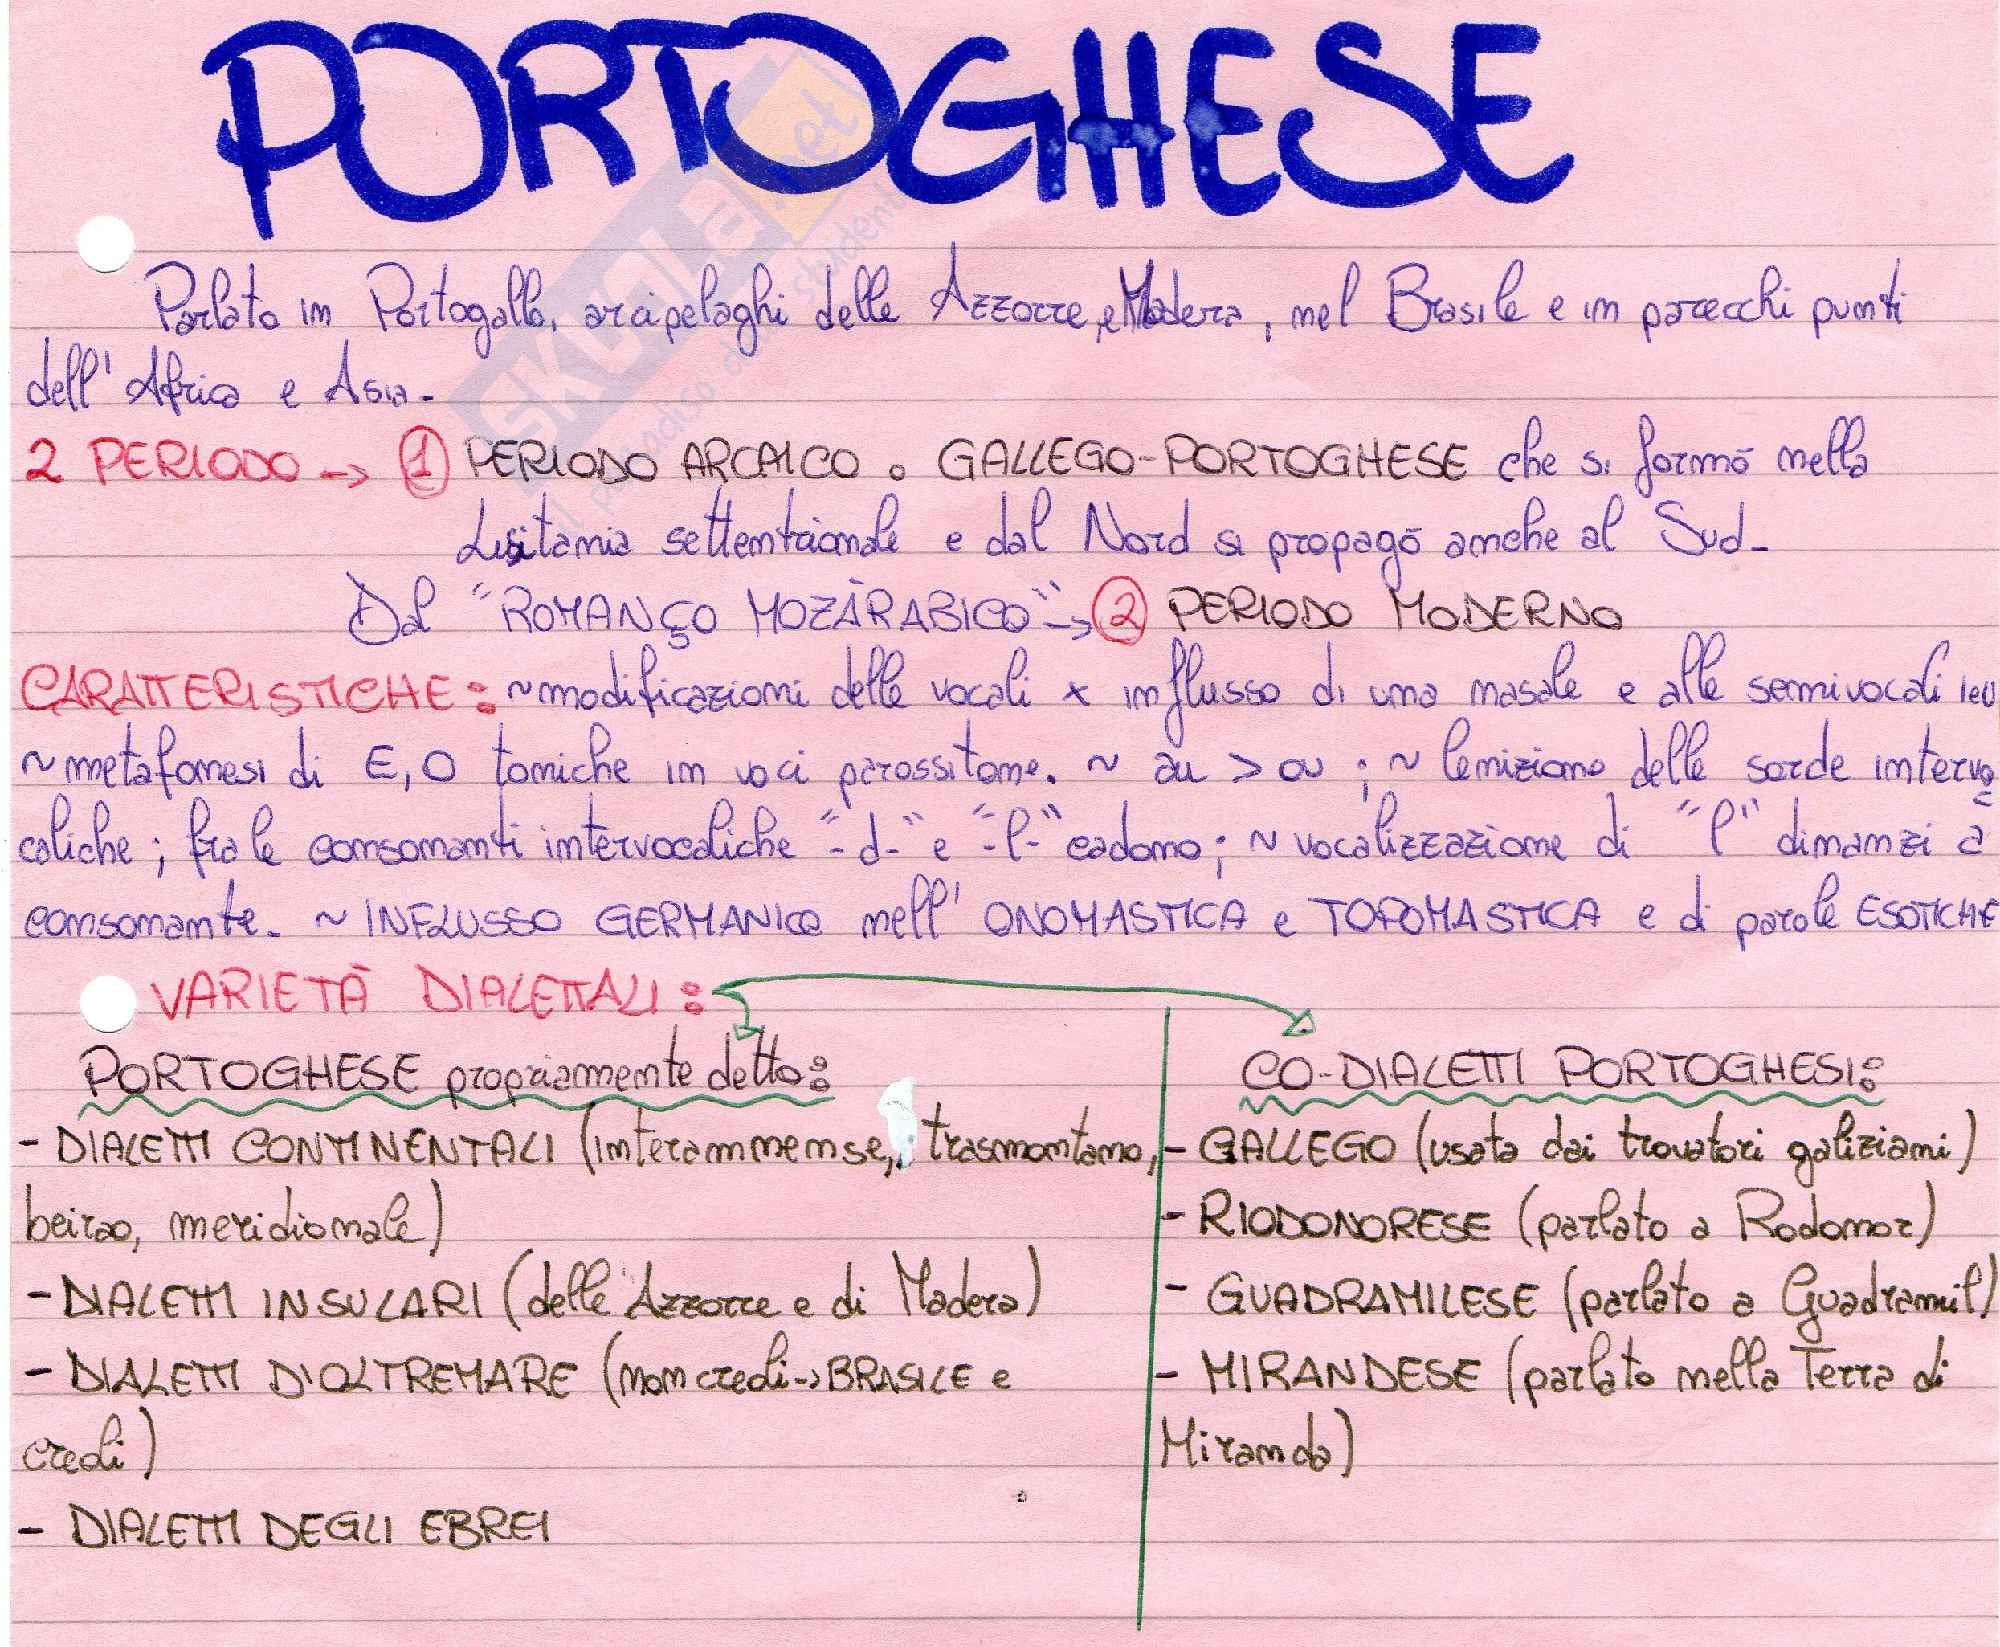 PORTOGHESE
skuola.net
il paradiso dello studente
Parlato in Portogallo, arcipelaghi delle Azzorre e Madera, nel Brasile e in parecchi punti
dell'Africa e Asia.
2 PERIODO → 1 PERIODO ARCAICO o GALLEGO-PORTOGHESE che si formò nella
Lusitania settentrionale e dal Nord si propagò anche al Sud.
Dal "ROMANÇO MOZÀRABICO" → 2 PERIODO MODERNO
CARATTERISTICHE: ~ modificazioni delle vocali x influsso di una nasale e alle semivocali i e u
~ metafonesi di E, O toniche in voci parossitone. ~ au > ou ; ~ lenizione delle sorde intervo
caliche ; fra le consonanti intervocaliche "-d-" e "-l-" cadono ; ~ vocalizzazione di "l" dinanzi a
consonante. ~ INFLUSSO GERMANICO nell' ONOMASTICA e TOPOMASTICA e di parole ESOTICHE
VARIETÀ DIALETTALI:
PORTOGHESE propriamente detto:
- DIALETTI CONTINENTALI (interamnense, trasmontano,
beirao, meridionale)
- DIALETTI INSULARI (delle Azzorre e di Madera)
- DIALETTI D'OLTREMARE (non creoli → BRASILE e
creoli)
- DIALETTI DEGLI EBREI
CO-DIALETTI PORTOGHESI:
- GALLEGO (usato dai trovatori galiziani)
- RIODONORESE (parlato a Rodonor)
- GUADRAMILESE (parlato a Guadramil)
- MIRANDESE (parlato nella Terra di
Miranda)